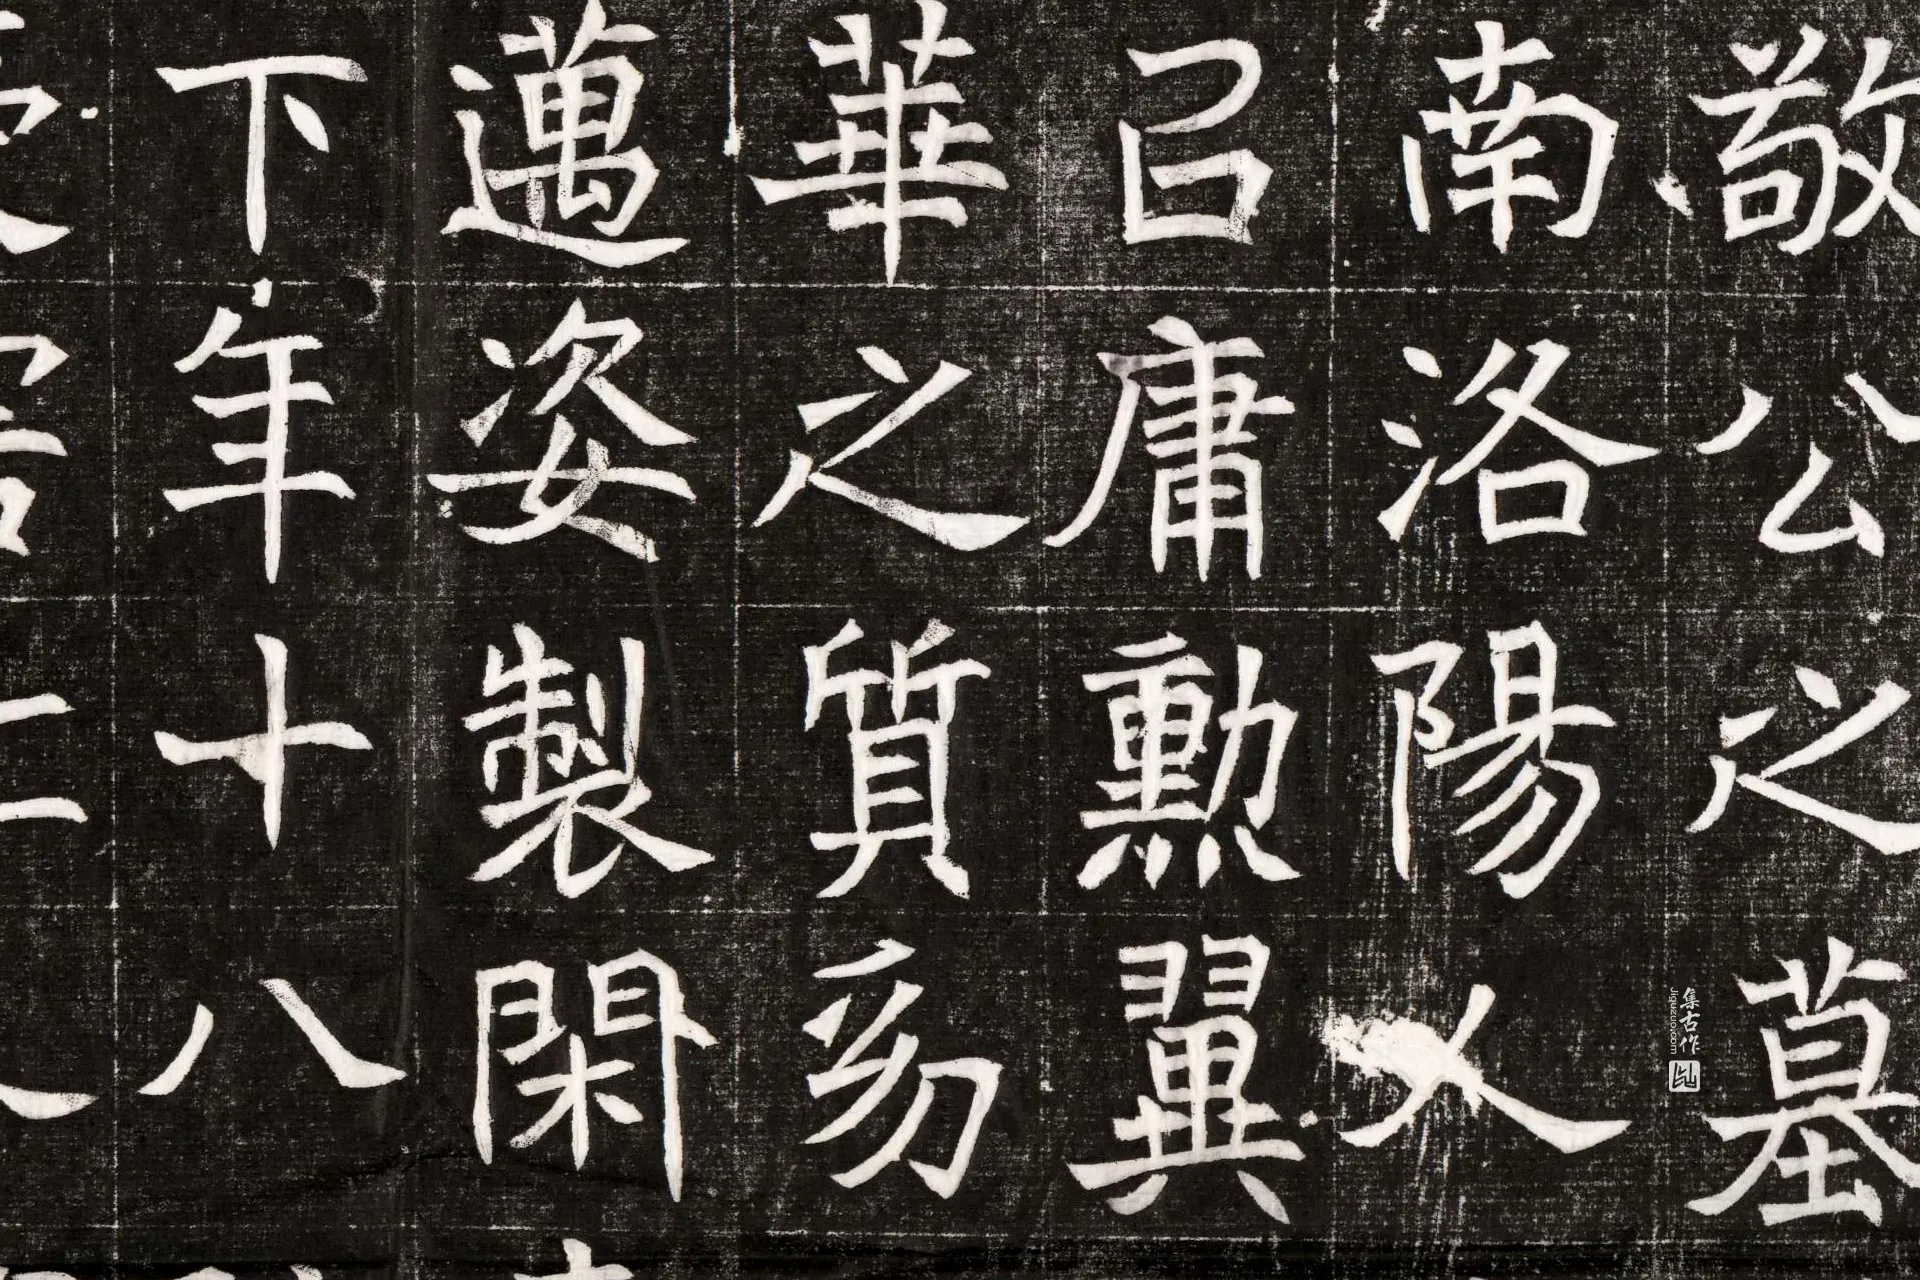 敬公之墓
南洛陽人
㠯庸勲翼
華之質幼
邁姿製閑
下年十八
集古作
Jiguzuo.com